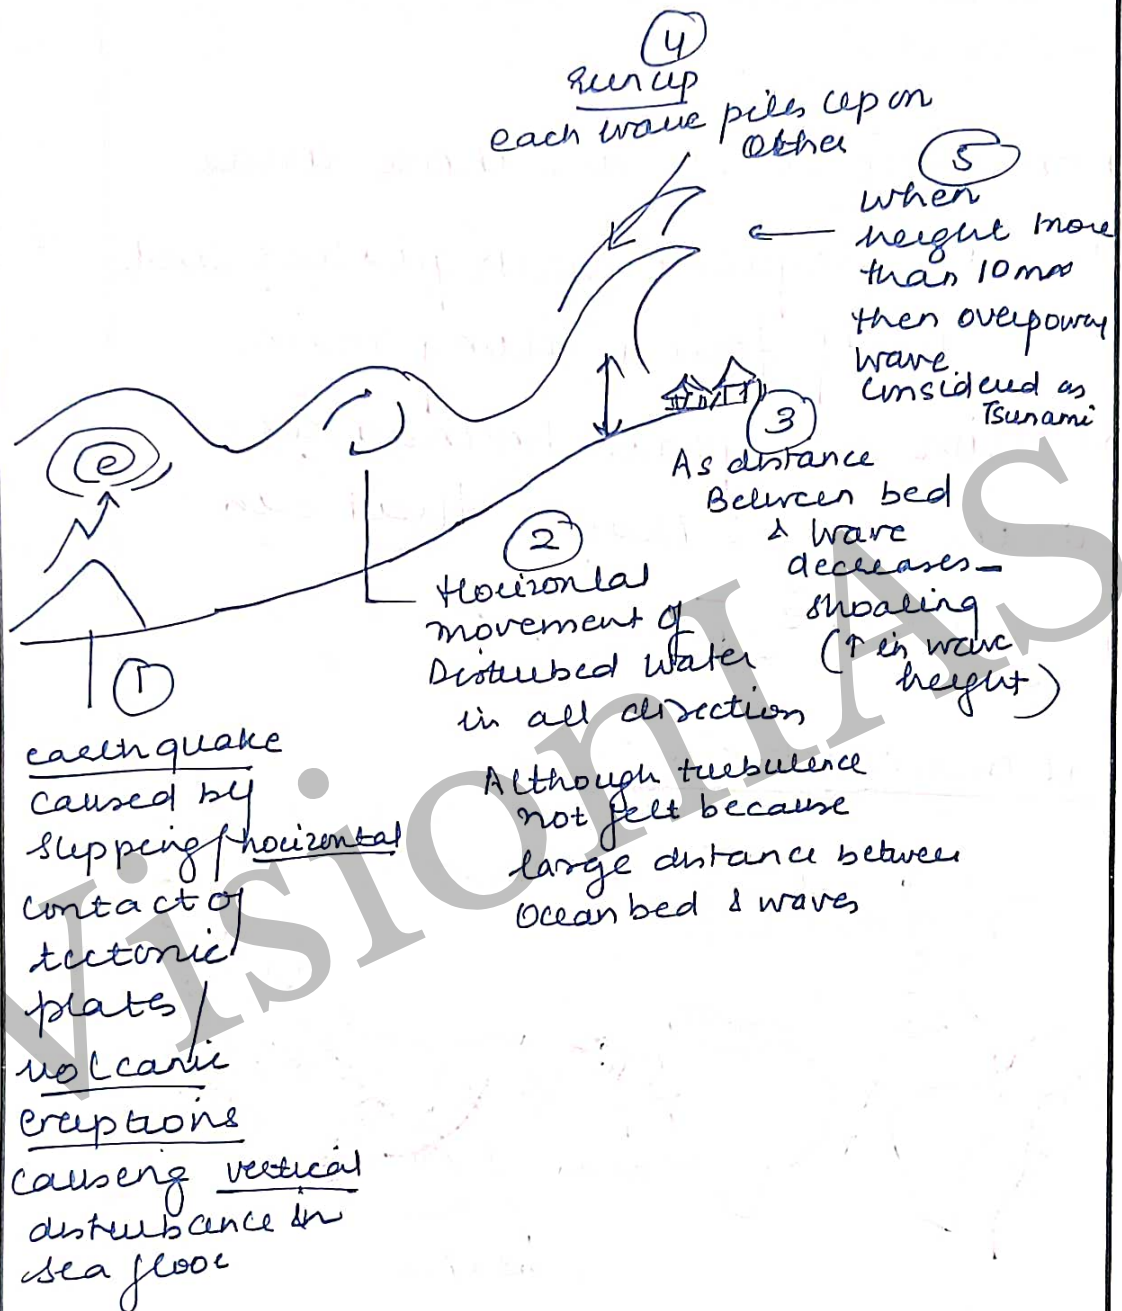 4
Run up
each wave piles up on
other
5
when
height more
than 10m
then overpowers
wave
considered as
Tsunami
3
As distance
Between bed
& wave
decreases -
shoaling
(↑ in wave
height)
2
Horizontal
movement of
Disturbed water
in all direction
Although turbulence
not felt because
large distance between
Ocean bed & waves
1
earthquake
caused by
slipping/horizontal
contact of
tectonic
plates/
volcanic
eruptions
causing vertical
disturbance in
sea floor
e
VisionIAS